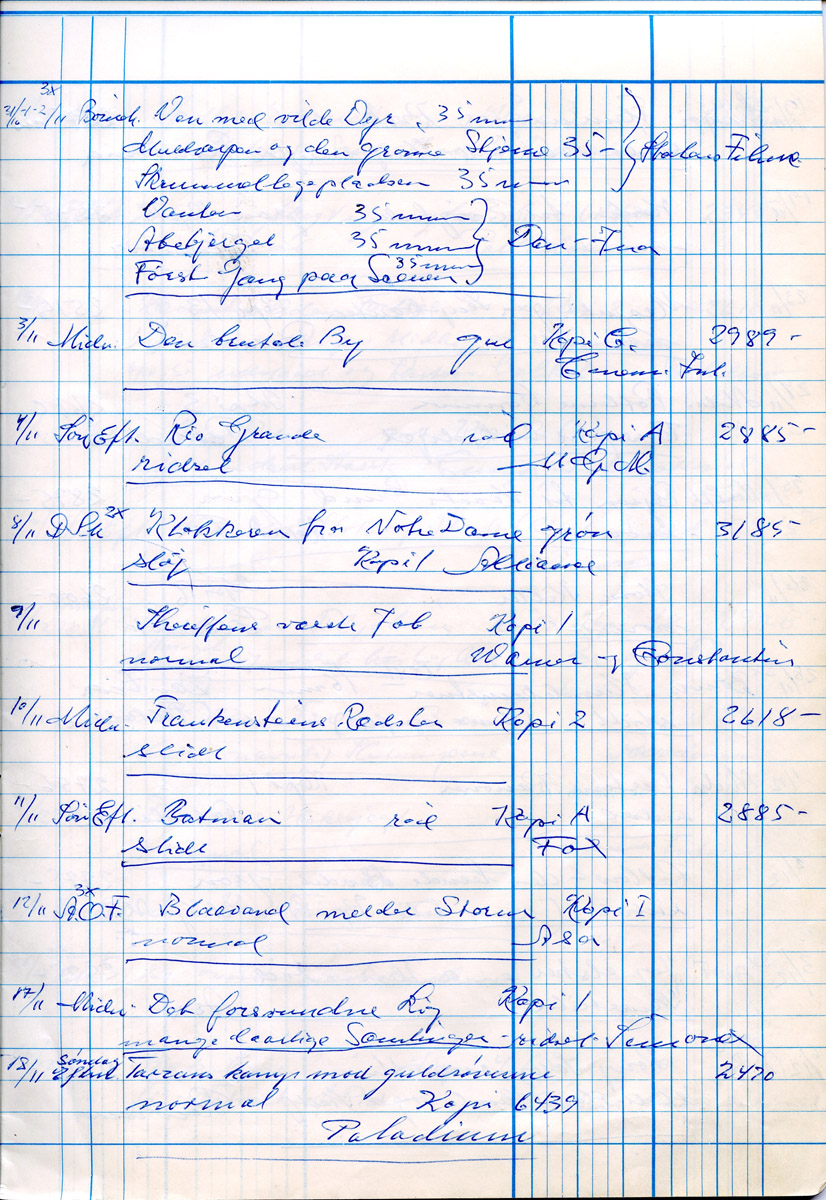 3x
31/10-1-2/11 Børneh. Ven med vilde Dyr. 35 mm
Muldvarpen og den grønne Stjerne 35 - Statens Films
Skrammellegepladsen 35 mm
Vanten 35 mm
Abebjerget 35 mm Dan-Ina
Først Gang paa Scenen 35 mm
3/11 Midn. Den brutale By gul Kopi C. 2989-
4/11 Søn Eft. Rio Grande rød Kopi A 2885-
ridset M G M.
8/11 D Sk 2x Klokkeren fra Notre Dame grøn 3185-
støj Kopi 1 Alliance
9/11 Sheriffens værste Job Kopi 1
normal Warner og Constantin
10/11 Midn. Frankensteins Rædsler Kopi 2 2618-
slidt
11/11 Søn Eft. Batman rød Kopi A 2885-
slidt Fox
3x
12/11 A.O.F. Blaavand melder Storm Kopi I
normal Asa
17/11 Midn. Det forsvundne Kopi 1
mange daarlige Samlinger - ridset
18/11 Søndag Eftm. Tarzans kamp mod guldrøverne 2470
normal Kopi 6439
Paladium